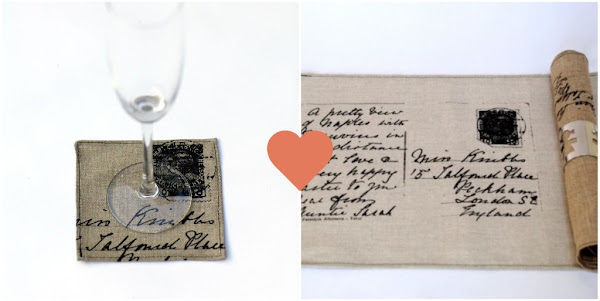 Miss Kniths
15 Talfourd Place
A pretty view
of Naples with
Vesuvius in
distance
t Love &
very happy
Easter to you
from
Auntie Sarah
Miss Kniths
15 Talfourd Place
Peckham
London S.E.
England